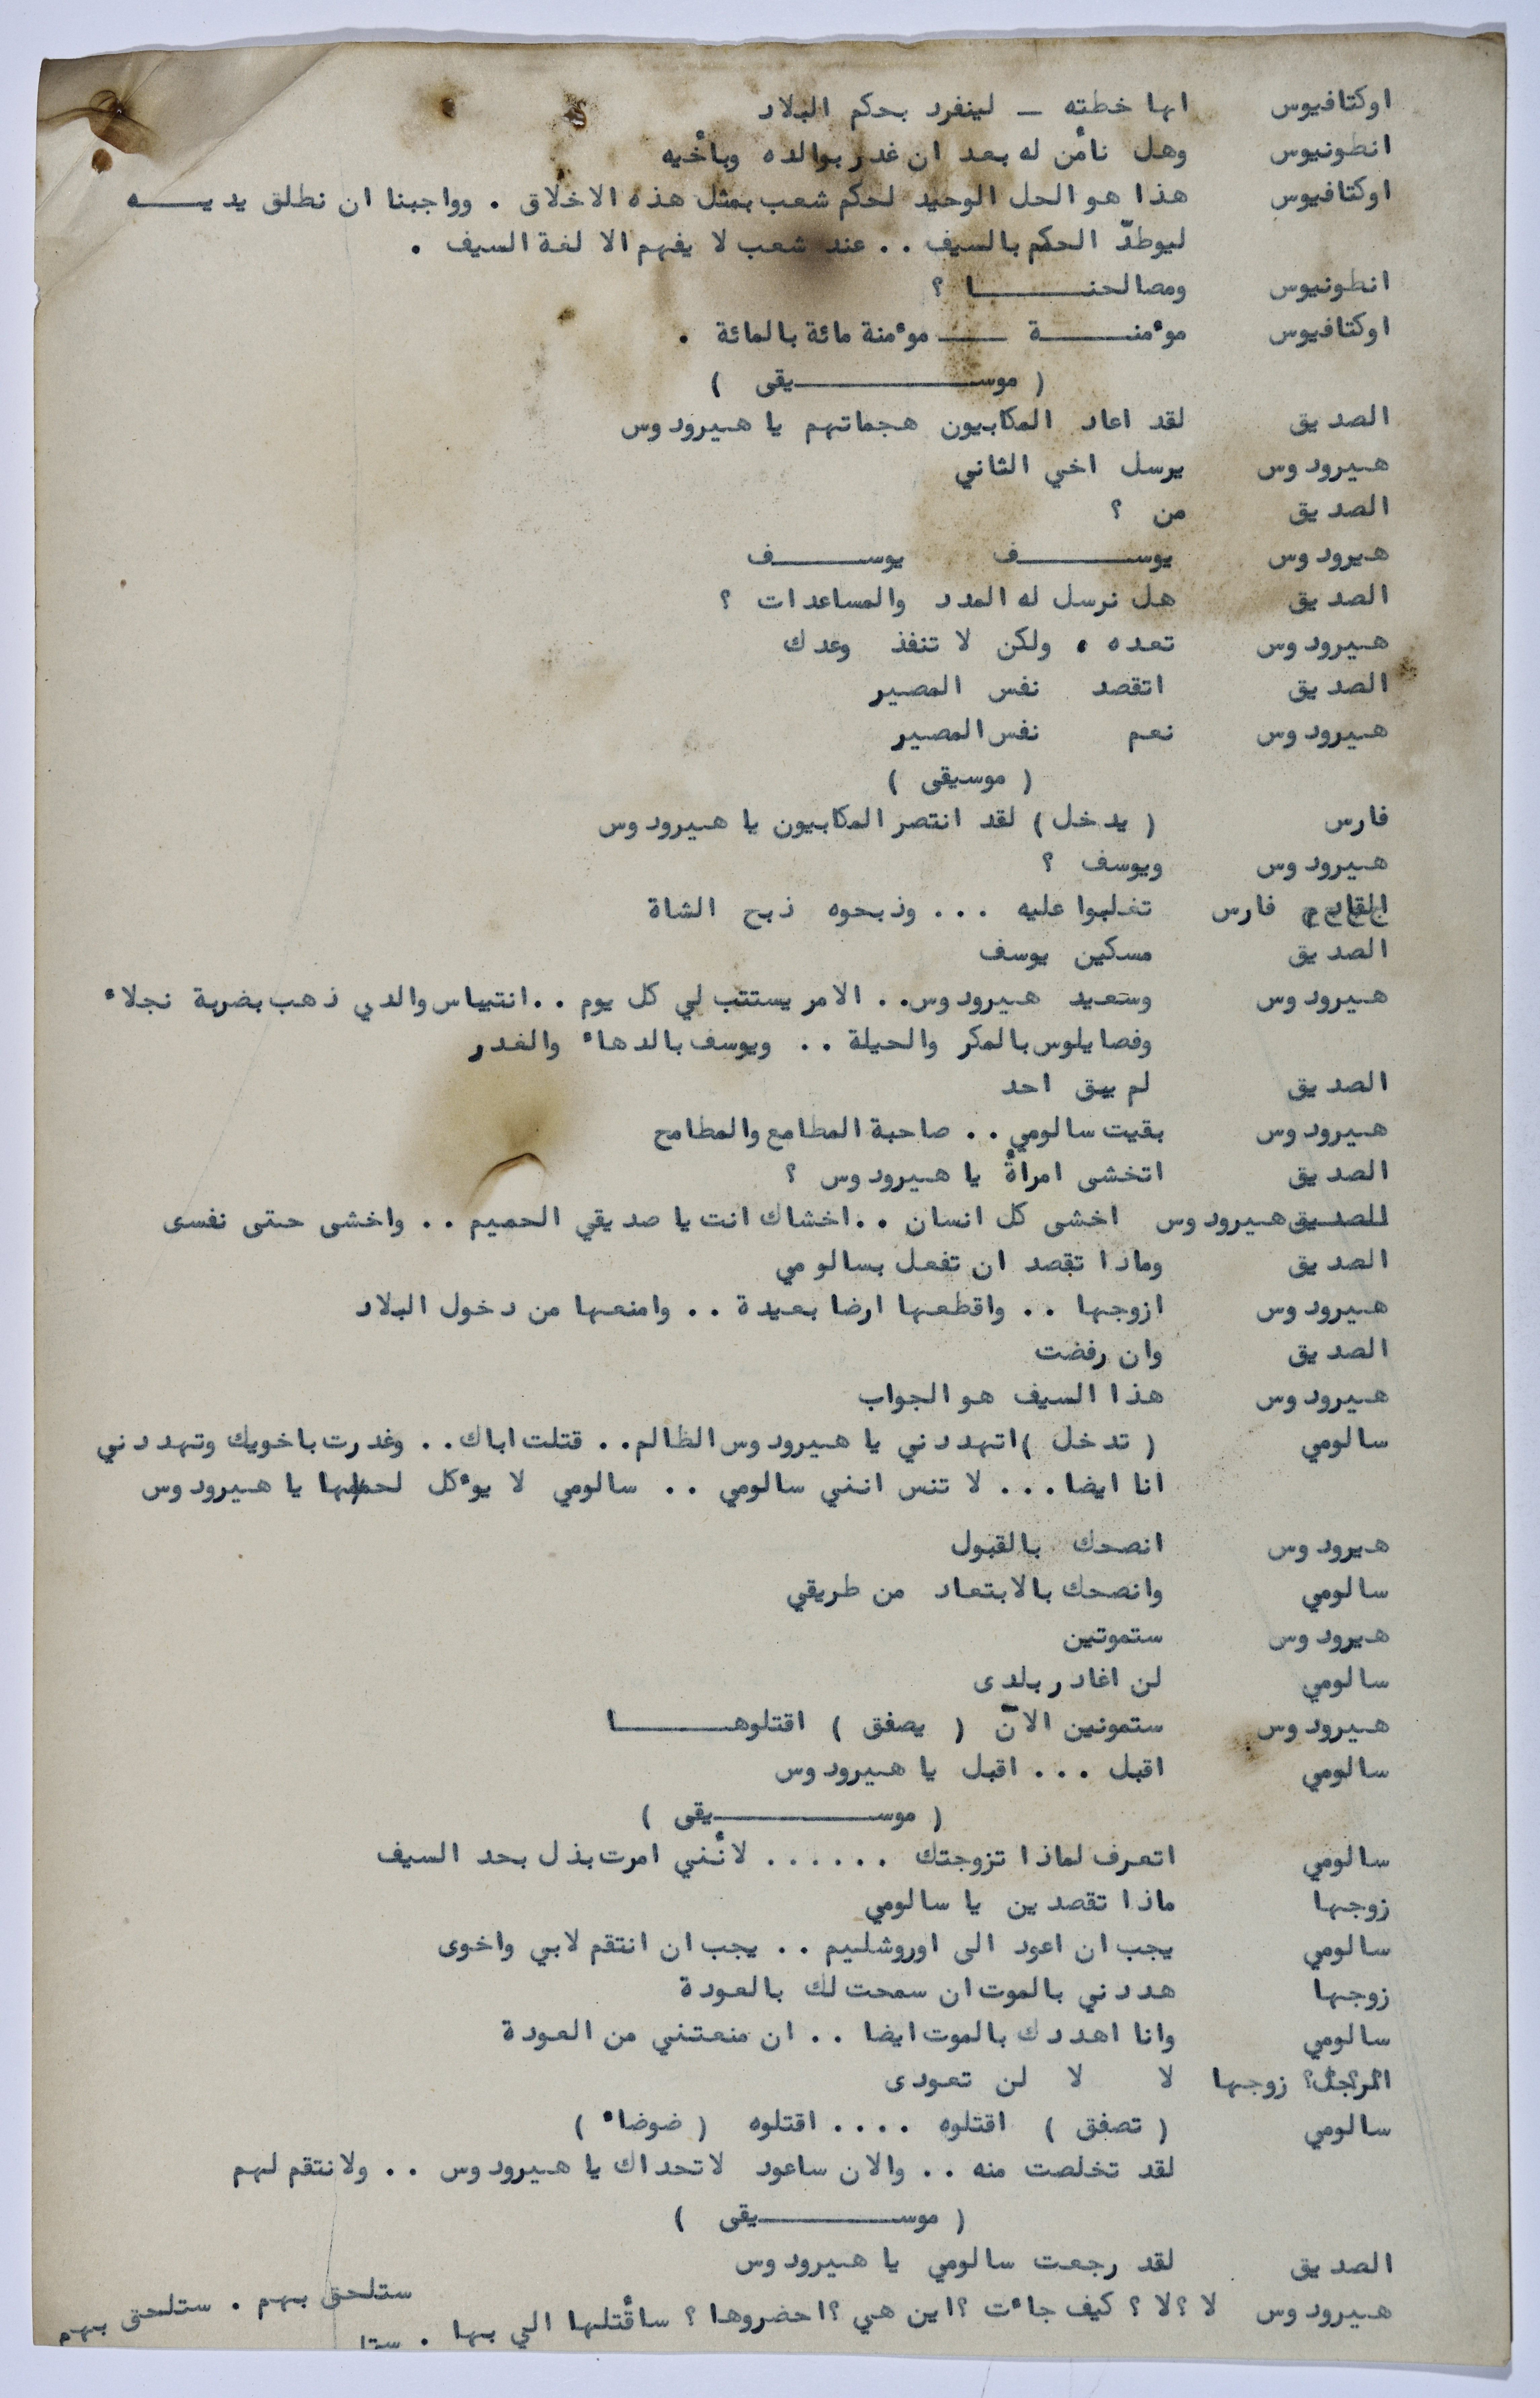 اوكتافيوس انها خطته ـ لينفرد بحكم البلاد
انطونيوس وهل نأمن له بعد ان غدر بوالده وبأخيه
اوكتافيوس هذا هو الحل الوحيد لحكم شعب بمثل هذه الاخلاق . وواجبنا ان نطلق يديـــه
ليوطدّ الحكم بالسيف .. عند شعب لا يفهم الا لغة السيف .
انطونيوس ومصالحنـــــا ؟
اوكتافيوس موءمنــــة ــــ موءمنة مائة بالمائة .
( موســـــــيقى )
الصديق لقد اعاد المكابيون هجماتهم يا هيرودوس
هيرودوس يرسل اخي الثاني
الصديق من ؟
هيرودوس يوســـــف يوســـــف
الصديق هل نرسل له المدد والمساعدات ؟
هيرودوس تعده . ولكن لا تنفذ وعدك
الصديق اتقصد نفس المصير
هيرودوس نعم نفس المصير
( موسيقى )
فارس ( يدخل ) لقد انتصر المكابيون يا هيرودوس
هيرودوس ويوسف ؟
القادم فارس تغلبوا عليه ... وذبحوه ذبح الشاة
الصديق مسكين يوسف
هيرودوس وسعيد هيرودوس.. الامر يستتب لي كل يوم .. انتيباس والدي ذهب بضربة نجلاء
وفصايلوس بالمكر والحيلة .. ويوسف بالدهاء والغدر
الصديق لم يبق احد
هيرودوس بقيت سالومي .. صاحبة المطامع والمطامح
الصديق اتخشى امرأة يا هيرودوس ؟
الصديق هيرودوس اخشى كل انسان .. اخشاك انت يا صديقي الحميم .. واخشى حتى نفسى
الصديق وماذا تقصد ان تفعل بسالومي
هيرودوس ازوجها .. واقطعها ارضا بعيدة .. وامنعها من دخول البلاد
الصديق وان رفضت
هيرودوس هذا السيف هو الجواب
سالومي ( تدخل ) اتهددني يا هيرودوس الظالم.. قتلت اباك.. وغدرت باخويك وتهددني
انا ايضا... لا تنس انني سالومي .. سالومي لا يوءكل لحمها يا هيرودوس
هيرودوس انصحك بالقبول
سالومي وانصحك بالابتعاد من طريقي
هيرودوس ستموتين
سالومي لن اغادر بلدى
هيرودوس ستمونين الآن ( يصفق ) اقتلوهـــــا
سالومي اقبل ... اقبل يا هيرودوس
( موســـــــيقى )
سالومي اتعرف لماذا تزوجتك ...... لأنني امرت بذل بحد السيف
زوجها ماذا تقصدين يا سالومي
سالومي يجب ان اعود الى اوروشليم .. يجب ان انتقم لابي واخوى
زوجها هددني بالموت ان سمحت لك بالعودة
سالومي وانا اهددك بالموت ايضا .. ان منعتني من العودة
الرجل زوجها لا لا لن تعودى
سالومي ( تصفق ) اقتلوه .... اقتلوه ( ضوضاء )
لقد تخلصت منه .. والان ساعود لاتحداك يا هيرودوس .. ولانتقم لهم
( موســـــــيقى )
الصديق لقد رجعت سالومي يا هيرودوس
هيرودوس لا ؟ لا ؟ كيف جاءت ؟ اين هي ؟ احضروها ؟ سأقتلها الي بها . ستلحق بهم . ستلحق بهم